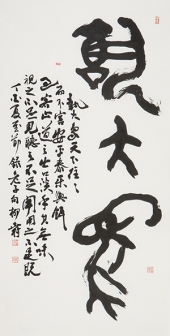 執大象
執大象天下往〻
而不害安平泰樂與餌
過客止道之出口淡乎其無味
視之不足見聽之不足聞用之不足既
丁亥夏節錄老子句